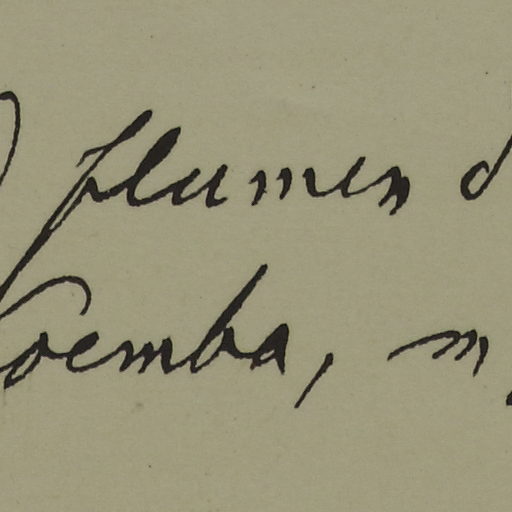 flumen d
oemba, m